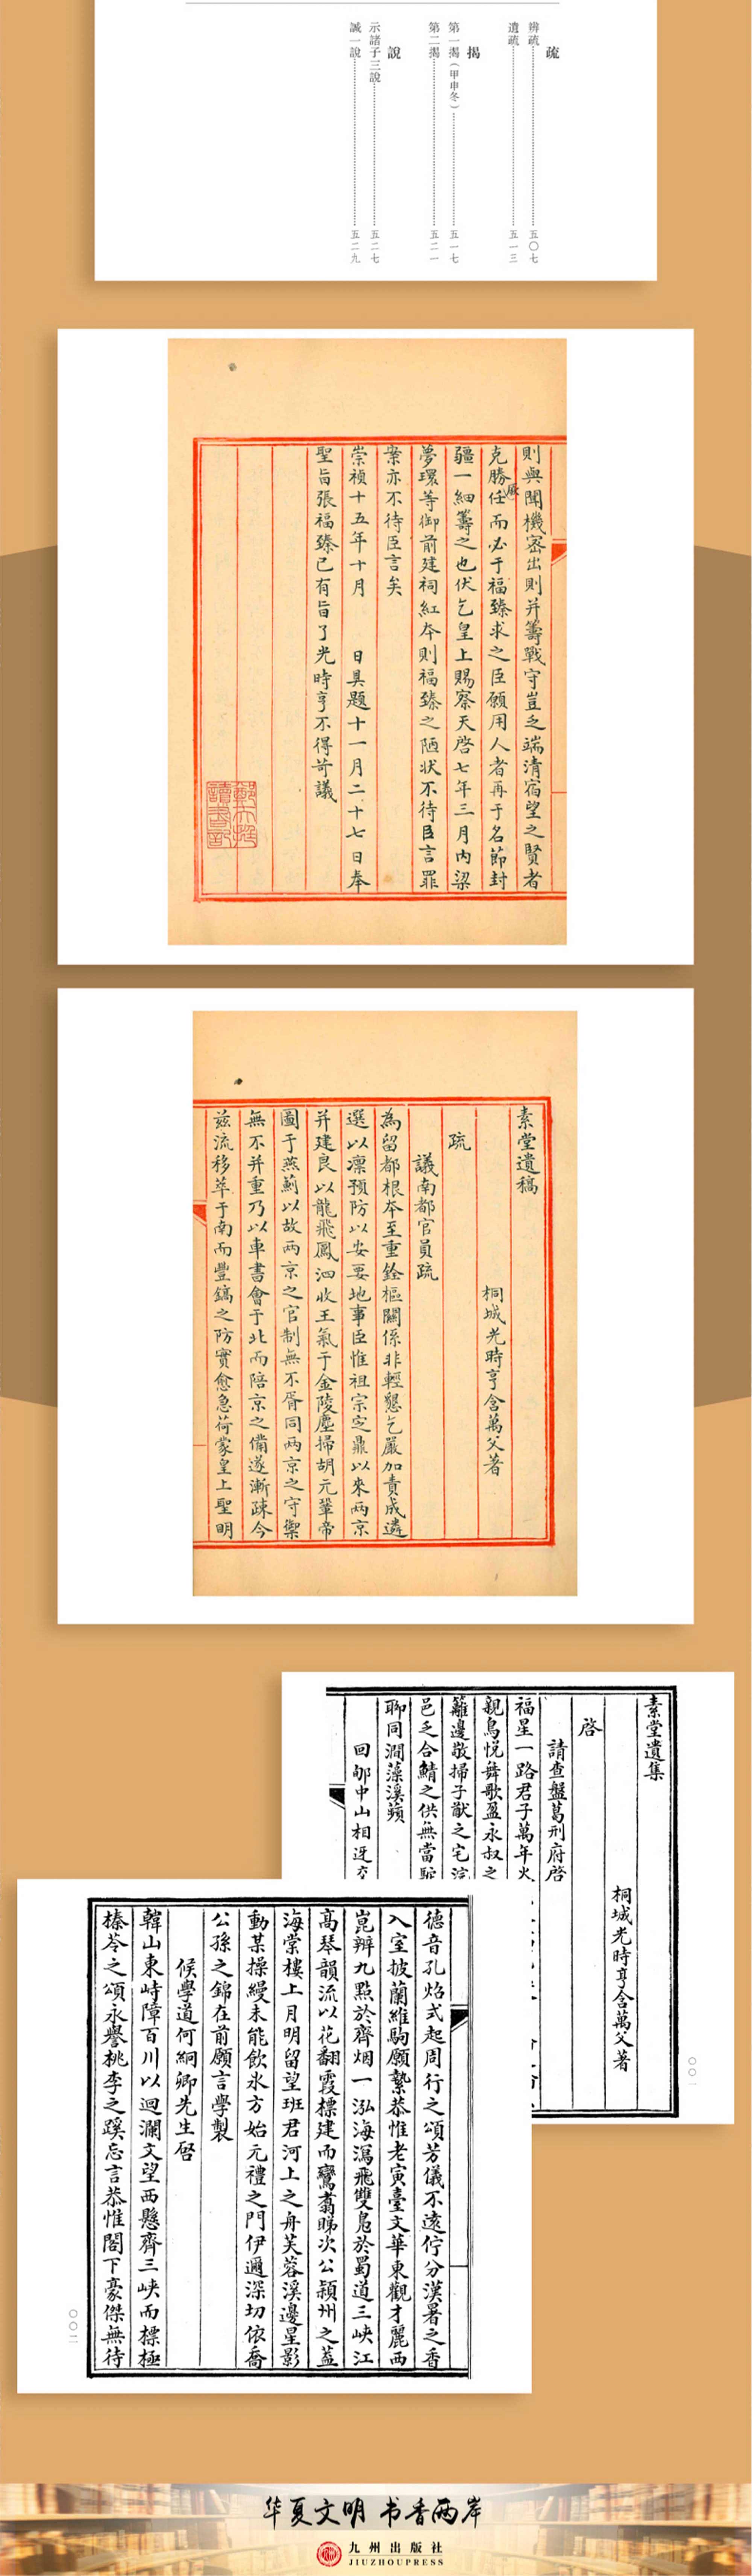 疏
辨疏 五〇七
遺疏 五一三
揭
第一揭（甲申冬） 五一七
第二揭 五二一
說
示諸子三說 五二七
誠一說 五二九
則與聞機密出則并籌戰守豈乏端清宿望之賢者
克勝任而必于福臻求之臣願用人者再于名節封
疆一細籌之也伏乞皇上賜察天啓七年三月內梁
夢環等御前建祠紅本則福臻之陋狀不待臣言罪
案亦不待臣言矣
崇禎十五年十月 日具題十一月二十七日奉
聖旨張福臻已有旨了光時亨不得苛議
素堂遺稿
桐城光時亨含萬父著
疏
議南都官員疏
為留都根本至重銓樞關係非輕懇乞嚴加責成遴
選以凜預防以安要地事臣惟祖宗定鼎以來兩京
并建良以龍飛鳳泗收王氣于金陵塵掃胡元鞏帝
圖于燕薊以故兩京之官制無不胥同兩京之守禦
無不并重乃以車書會于北而陪京之備遂漸疎今
茲流移萃于南而豐鎬之防實愈急荷蒙皇上聖明
素堂遺集
桐城光時亨含萬父著
啓
請查盤葛刑府啓
福星一路君子萬年
親鳥悅舞歌盈永叔之
籬邊敬掃子猷之宅
邑乏合鯖之供無當
聊同澗藻溪蘋
回邮中山相迓
〇〇一
德音孔炤式起周行之頌芳儀不遠佇分漢署之香
入室披蘭維駒願縶恭惟老寅臺文華東觀才麗西
崑辨九點於齊烟一泓海瀉飛雙鳧於蜀道三峽江
高琴韻流以花翻霞標建而鸞翥睇次公潁州之蓋
海棠樓上月明留望班君河上之舟芙蓉溪邊星影
動某操縵未能飲氷方始元禮之門伊邇深切依喬
公孫之錦在前願言學製
候學道何絅卿先生啓
韓山東峙障百川以迴瀾文望西懸齊三峽而標極
榛苓之頌永譽桃李之蹊忘言恭惟閤下豪傑無待
〇〇二
华夏文明 书香两岸
九州出版社
JIUZHOUPRESS